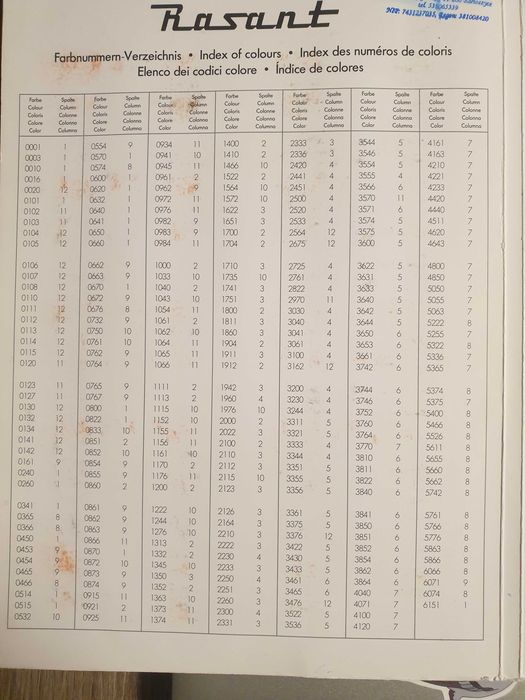 Rasant
tel. 338063339
NIP: 7431237035, Regon: 381008420
Farbnummern-Verzeichnis • Index of colours • Index des numéros de coloris
Elenco dei codici colore • Índice de colores
Farbe Spalte Farbe Spalte Farbe Spalte Farbe Spalte Farbe Spalte Farbe Spalte Farbe Spalte
Colour Column Colour Column Colour Column Colour Column Colour Column Colour Column Colour Column
Coloris Colonne Coloris Colonne Coloris Colonne Coloris Colonne Coloris Colonne Coloris Colonne Coloris Colonne
Colore Colonna Colore Colonna Colore Colonna Colore Colonna Colore Colonna Colore Colonna Colore Colonna
Color Columna Color Columna Color Columna Color Columna Color Columna Color Columna Color Columna
0001 1 0554 9 0934 11 1400 2 2333 3 3544 5 4161 7
0003 1 0570 1 0941 10 1410 2 2336 3 3546 5 4163 7
0010 1 0574 8 0945 11 1466 10 2420 4 3554 5 4210 7
0016 1 0600 1 0961 2 1522 2 2441 4 3555 4 4221 7
0020 12 0620 1 0962 9 1564 10 2451 4 3566 6 4233 7
0101 1 0632 1 0972 11 1572 10 2500 4 3570 11 4420 7
0102 11 0640 1 0976 11 1622 3 2520 4 3571 6 4440 7
0103 11 0641 1 0982 9 1651 3 2533 4 3574 5 4511 7
0104 12 0650 1 0983 9 1700 2 2564 12 3575 5 4620 7
0105 12 0660 1 0984 11 1704 2 2675 12 3600 5 4643 7
0106 12 0662 9 1000 2 1710 3 2725 4 3622 5 4800 7
0107 12 0663 9 1033 10 1735 10 2761 4 3631 5 4850 7
0108 12 0670 1 1040 2 1741 3 2822 4 3633 5 5050 7
0110 12 0672 9 1043 10 1751 3 2970 11 3640 5 5055 7
0111 12 0676 8 1054 11 1800 2 3030 4 3642 5 5063 7
0112 12 0732 9 1061 2 1811 3 3040 4 3644 5 5222 8
0113 12 0750 10 1062 10 1860 3 3041 4 3650 6 5255 7
0114 12 0761 10 1064 11 1904 2 3061 4 3653 6 5322 8
0115 12 0762 9 1065 11 1911 3 3100 4 3661 6 5336 7
0120 11 0764 9 1066 11 1912 2 3162 12 3742 6 5365 7
0123 11 0765 9 1111 2 1942 3 3200 4 3744 6 5374 8
0127 11 0767 9 1113 2 1960 4 3230 4 3746 6 5375 7
0130 12 0800 1 1115 10 1976 10 3244 4 3752 6 5400 8
0132 12 0822 1 1152 10 2000 2 3311 5 3760 6 5466 8
0134 12 0833 10 1155 11 2022 3 3321 5 3764 6 5526 8
0141 12 0851 2 1156 11 2100 2 3333 4 3770 7 5611 8
0142 12 0852 10 1161 10 2110 3 3344 4 3810 6 5655 8
0161 9 0854 9 1170 2 2112 3 3351 5 3811 6 5660 8
0240 1 0855 9 1176 11 2115 10 3355 5 3822 6 5662 8
0260 1 0860 2 1200 2 2123 3 3356 5 3840 6 5742 8
0341 1 0861 9 1222 10 2126 3 3361 5 3841 6 5761 8
0365 8 0862 9 1244 10 2164 3 3375 5 3850 6 5766 8
0366 8 0863 9 1276 10 2210 3 3376 12 3851 6 5776 8
0450 1 0866 11 1313 2 2222 3 3422 5 3852 6 5863 8
0453 9 0870 1 1332 2 2230 4 3430 5 3854 6 5866 8
0454 9 0872 10 1345 10 2233 3 3433 5 3862 6 6066 8
0465 9 0873 9 1350 3 2250 4 3461 6 3864 6 6071 9
0466 8 0874 9 1352 2 2251 3 3465 6 4040 7 6074 8
0514 1 0915 11 1363 10 2260 3 3476 12 4071 7 6151 1
0515 1 0921 2 1373 11 2300 4 3522 5 4100 7
0532 10 0925 11 1374 11 2331 3 3536 5 4120 7